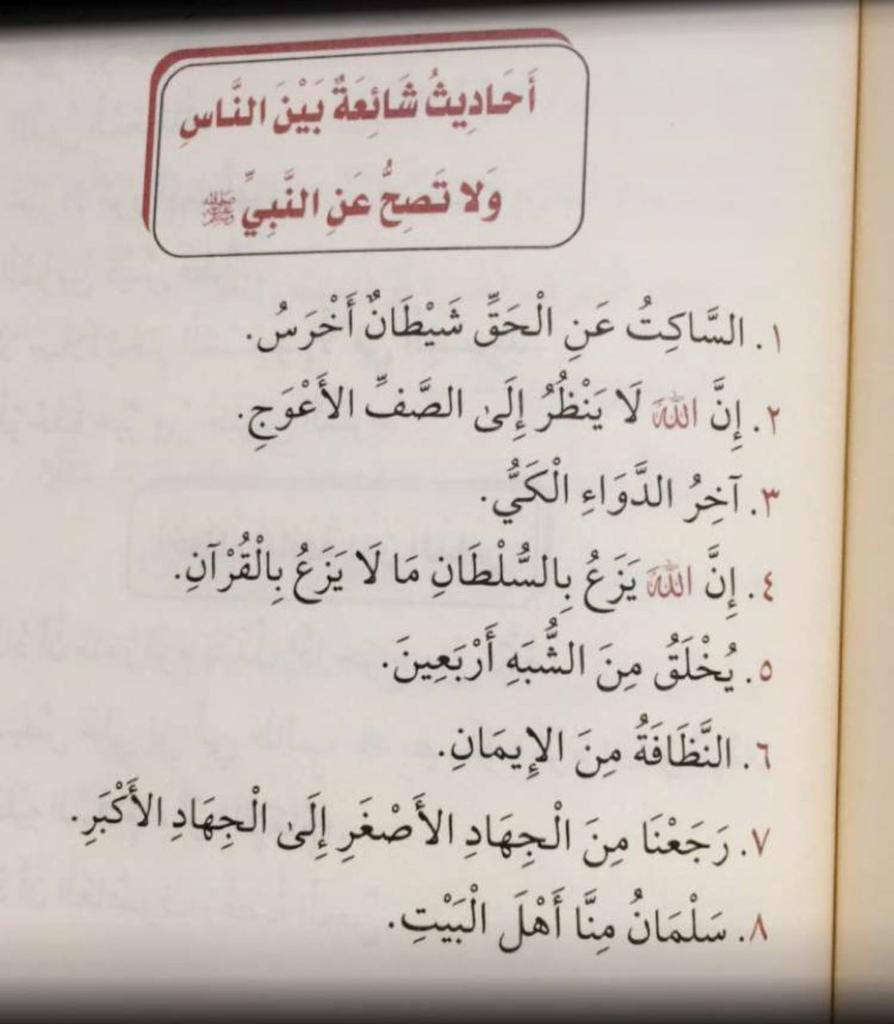 أَحَادِيثُ شَائِعَةٌ بَيْنَ النَّاسِ
وَلا تَصِحُّ عَنِ النَّبِيِّ ﷺ
١. السَّاكِتُ عَنِ الْحَقِّ شَيْطَانٌ أَخْرَسُ.
٢. إِنَّ اللهَ لَا يَنْظُرُ إِلَىٰ الصَّفِّ الأَعْوَجِ.
٣. آخِرُ الدَّوَاءِ الْكَيُّ.
٤. إِنَّ اللهَ يَزَعُ بِالسُّلْطَانِ مَا لَا يَزَعُ بِالْقُرْآنِ.
٥. يُخْلَقُ مِنَ الشُّبَهِ أَرْبَعِينَ.
٦. النَّظَافَةُ مِنَ الإِيمَانِ.
٧. رَجَعْنَا مِنَ الْجِهَادِ الأَصْغَرِ إِلَىٰ الْجِهَادِ الأَكْبَرِ.
٨. سَلْمَانُ مِنَّا أَهْلَ الْبَيْتِ.